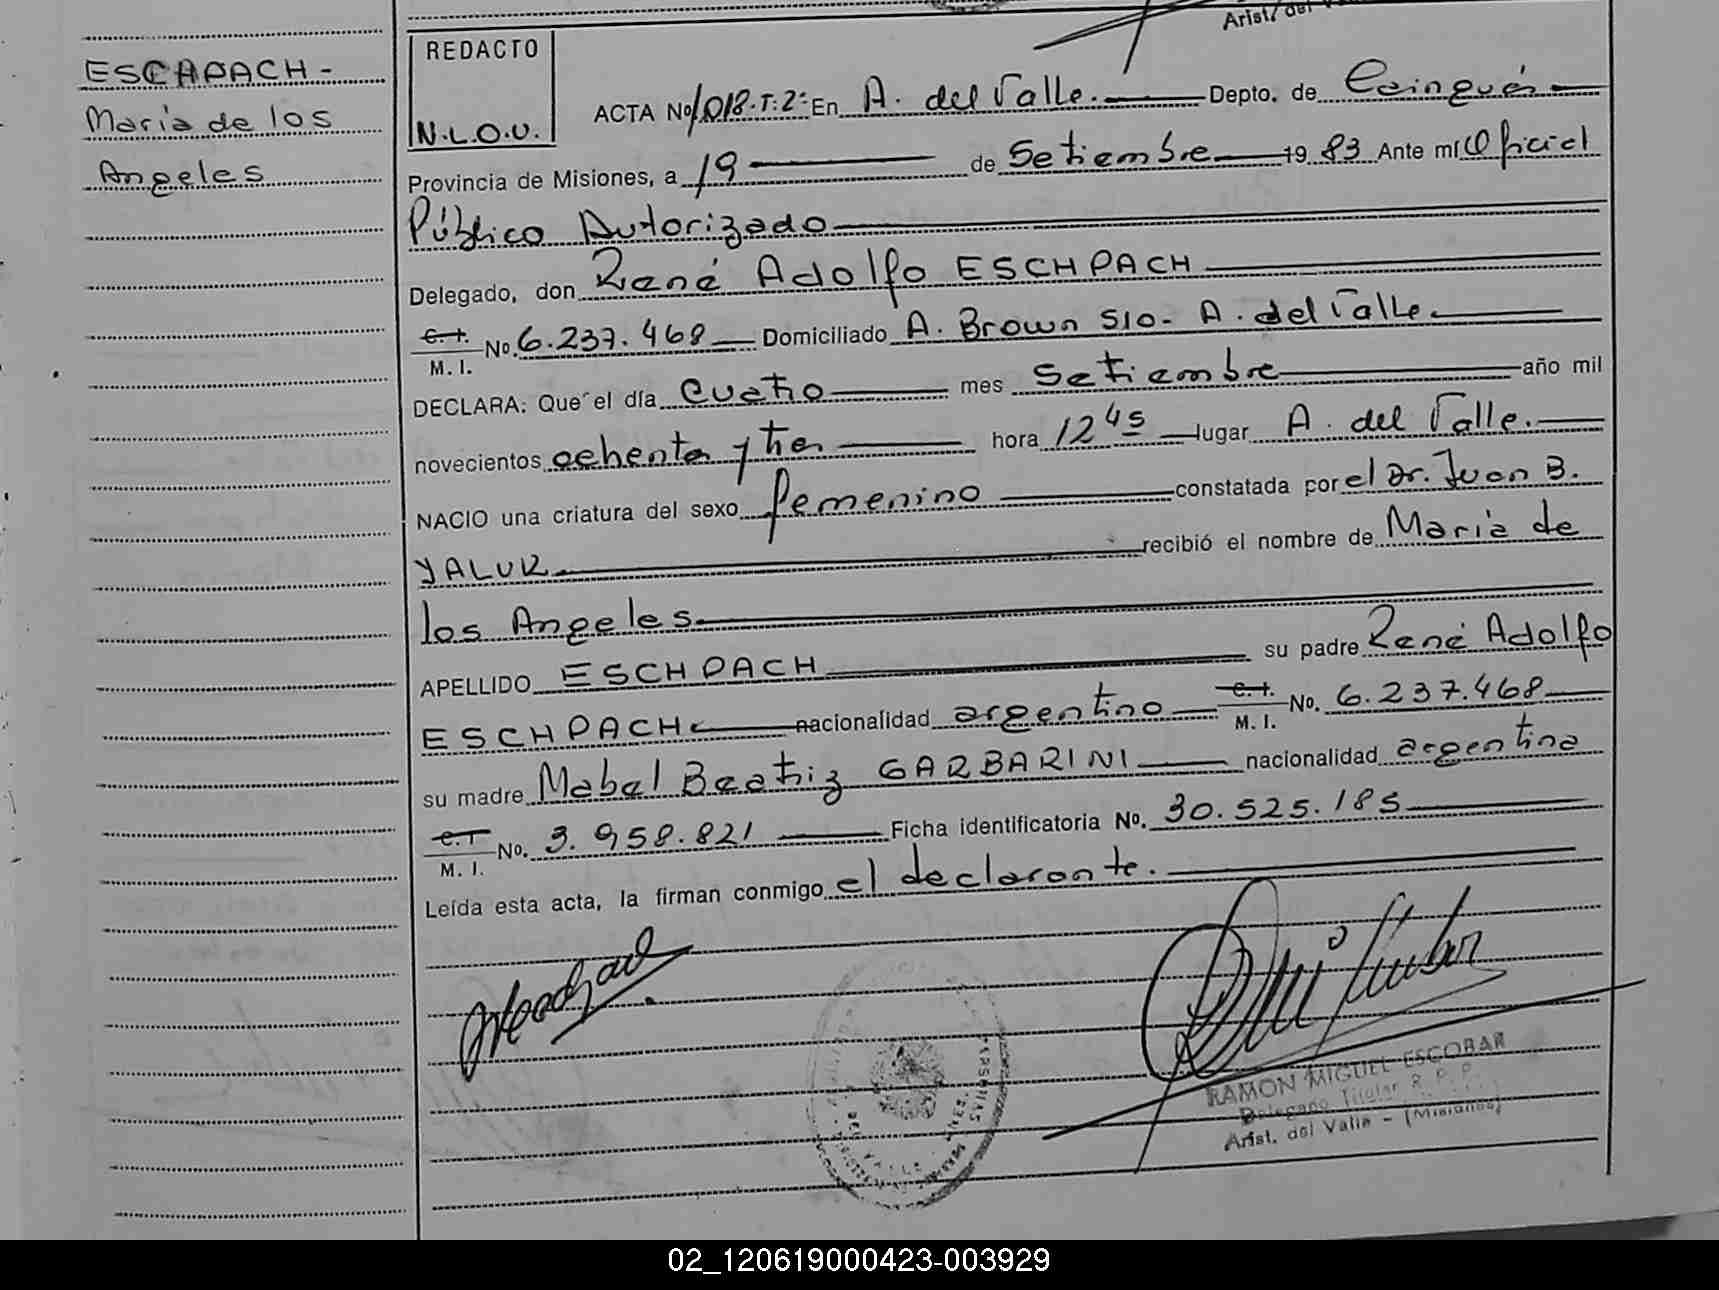 Arist. del V
ESCHPACH -
María de los
Angeles
REDACTO
N.L.O.U.
ACTA No 1018.T:2º En A. del Valle. Depto. de Cainguás
Provincia de Misiones, a 19 de Setiembre 19 83 Ante mí Oficial
Público Autorizado
Delegado, don René Adolfo ESCHPACH
C.I.
M. I. No. 6.237.468 Domiciliado A. Brown S10- A. del Valle.
DECLARA: Que el día cuatro mes Setiembre año mil
novecientos ochenta y tres hora 12 45 lugar A. del Valle.
NACIO una criatura del sexo femenino constatada por el Dr. Juan B.
YALUK recibió el nombre de María de
los Angeles.
APELLIDO ESCHPACH su padre René Adolfo
ESCHPACH nacionalidad argentino C.I.
M. I. No. 6.237.468
su madre Mabel Beatriz GARBARINI nacionalidad argentina
C.I.
M. I. No. 3.958.821 Ficha identificatoria No. 30.525.185
Leída esta acta, la firman conmigo el declarante.
RAMON MIGUEL ESCOBAR
Delegado Titular R. P. P.
Arist. del Valle - (Misiones)
02_120619000423-003929